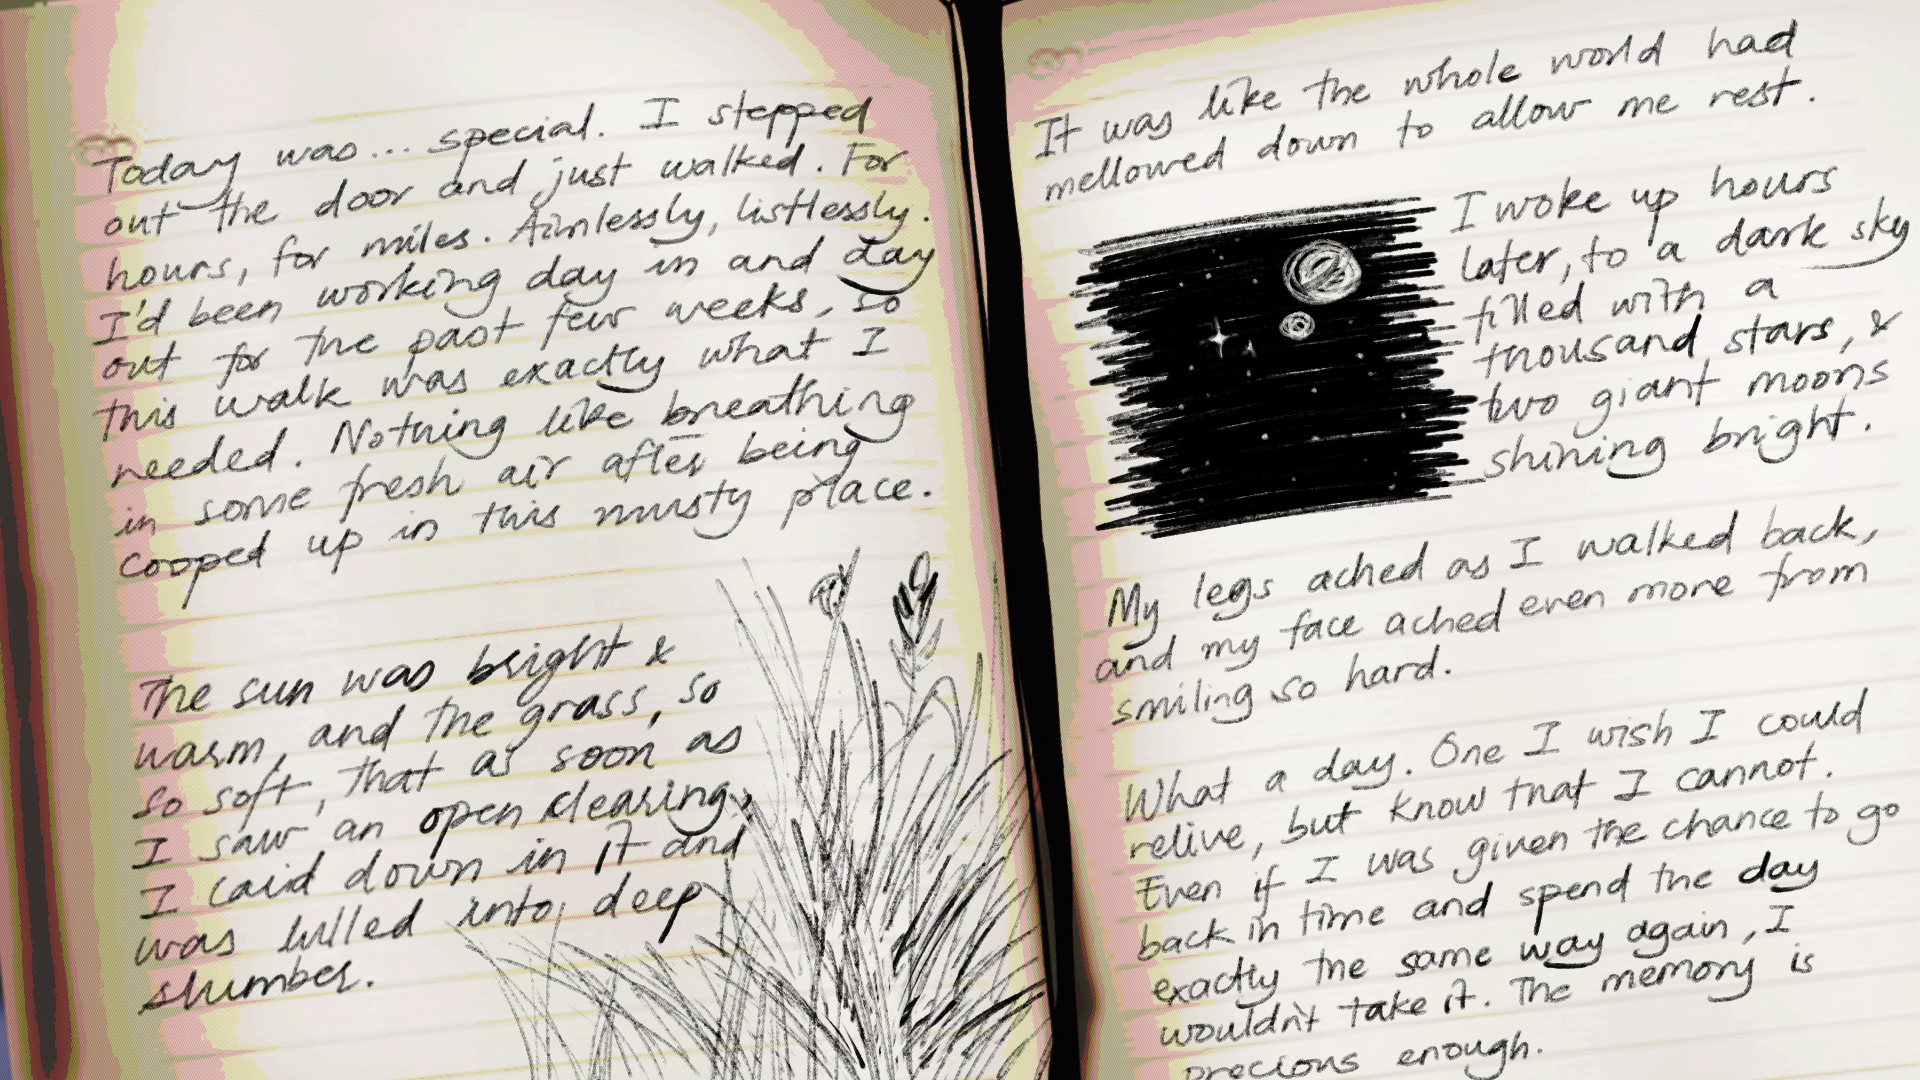 Today was... special. I stepped
out the door and just walked. For
hours, for miles. Aimlessly, listlessly.
I'd been working day in and day
out for the past few weeks, so
this walk was exactly what I
needed. Nothing like breathing
in some fresh air after being
cooped up in this musty place.
The sun was bright &
warm, and the grass, so
so soft, that as soon as
I saw an open clearing,
I laid down in it and
was lulled into deep
slumber.
It was like the whole world had
mellowed down to allow me rest.
I woke up hours
later, to a dark sky
filled with a
thousand stars, &
two giant moons
shining bright.
My legs ached as I walked back,
and my face ached even more from
smiling so hard.
What a day. One I wish I could
relive, but know that I cannot.
Even if I was given the chance to go
back in time and spend the day
exactly the same way again, I
wouldn't take it. The memory is
precious enough.